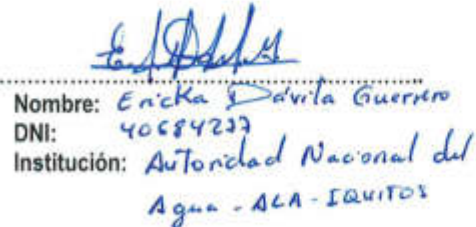 Nombre: Ericka Dávila Guerrero
DNI: 40684237
Institución: Autoridad Nacional del
Agua - ALA - IQUITOS